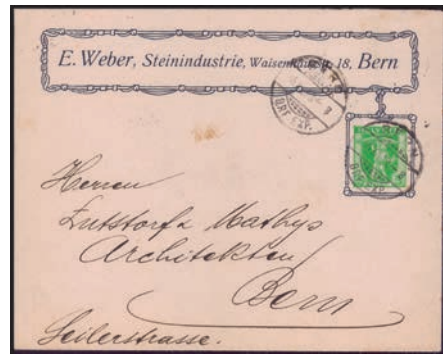 E. Weber, Steinindustrie, Waisenhausstr. 18, Bern
BERN
BRF. EXP.
Herren
Lutstorf & Mathys
Architekten
Bern
Seilerstrasse.